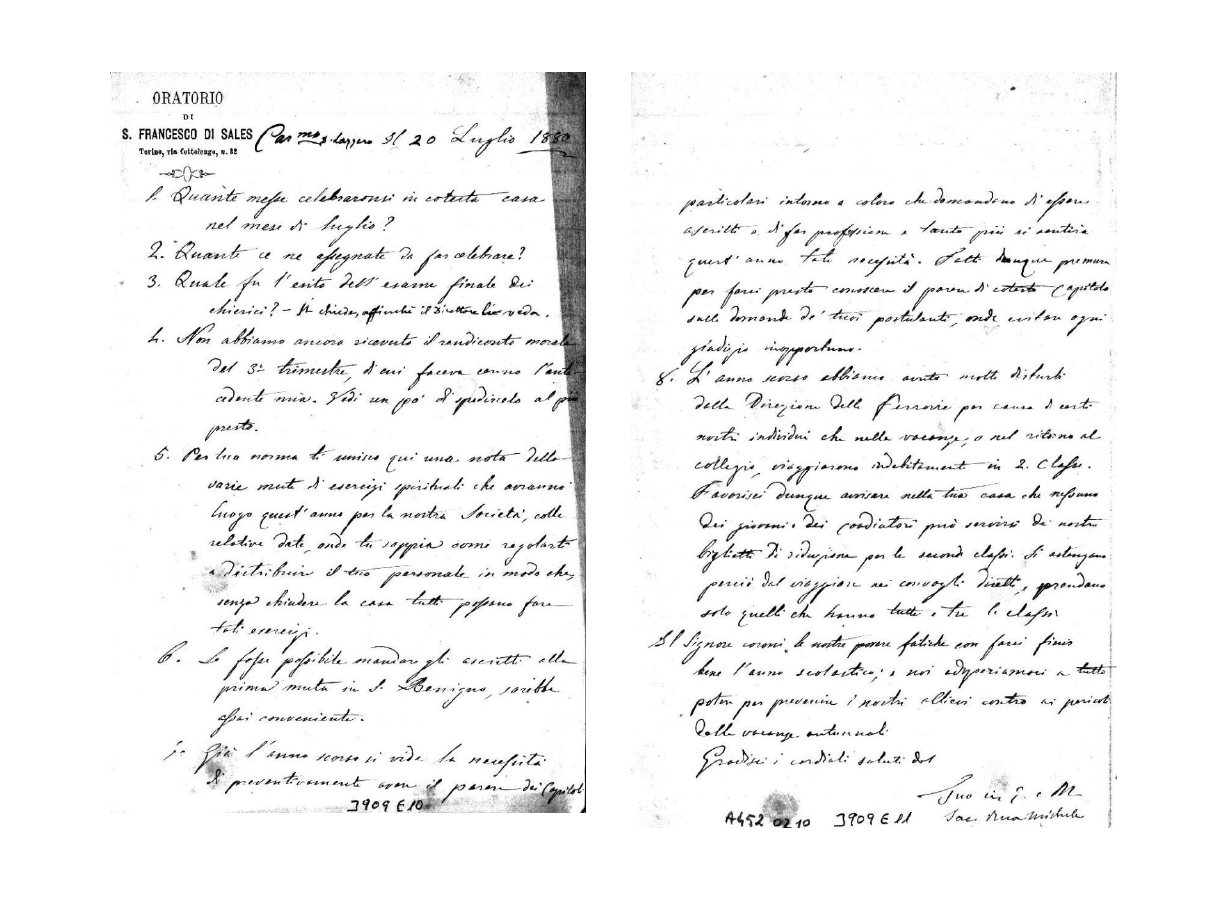 ORATORIO
DI
S. FRANCESCO DI SALES
Torino, via Cottolengo, n. 32
Car.mo Il 20 Luglio 1880
1. Quante messe celebraronsi in cotesta casa
nel mese di luglio?
2. Quante ce ne assegnate da far celebrare?
3. Quale fu l'esito dell'esame finale dei
chierici? - Si chiede, affinchè il Direttore li veda.
4. Non abbiamo ancora ricevuto il rendiconto morale
del 3° trimestre, di cui faceva cenno l'ante
cedente mia. Vedi un po' di spedircelo al più
presto.
5. Per tua norma ti unisco qui una nota delle
varie mute di esercizi spirituali che avranno
luogo quest'anno per la nostra Società, colle
relative date, onde tu sappia come regolarti
a distribuire il tuo personale in modo che,
senza chiudere la casa tutti possano fare
tali esercizi.
6. Se fosse possibile mandare gli ascritti alla
prima muta in S. Benigno, sarebbe
assai conveniente.
7. Già l'anno scorso si vide la necessità
di preventivamente avere il parere dei Capitoli
3909 E 10
particolari intorno a coloro che domandano di essere
ascritti o di far professione e tanto più si sentirà
quest'anno tale necessità. Fatti dunque premura
per farci presto conoscere il parere di cotesto Capitolo
sulle domande de' tuoi postulanti, onde evitare ogni
giudizio inopportuno.
8. L'anno scorso abbiamo avuto molti disturbi
dalla Direzione delle Ferrovie per causa di certi
nostri individui che nelle vacanze, o nel ritorno al
collegio, viaggiarono indebitamente in 2. Classe.
Favorisci dunque avvisare nella tua casa che nessuno
dei giovani e dei coadiutori può servirsi dei nostri
biglietti di riduzione per le seconde classi. Si astengano
perciò dal viaggiare nei convogli diretti, e prendano
solo quelli che hanno tutte e tre le classi
Il Signore coroni le nostre povere fatiche con farci finir
bene l'anno scolastico; e noi adoperiamoci a tutto
potere per prevenire i nostri allievi contro ai pericoli
delle vacanze autunnali
Gradisci i cordiali saluti del
Tuo in G. e M.
Sac. Rua Michele
A452 02 10 3909 E 11